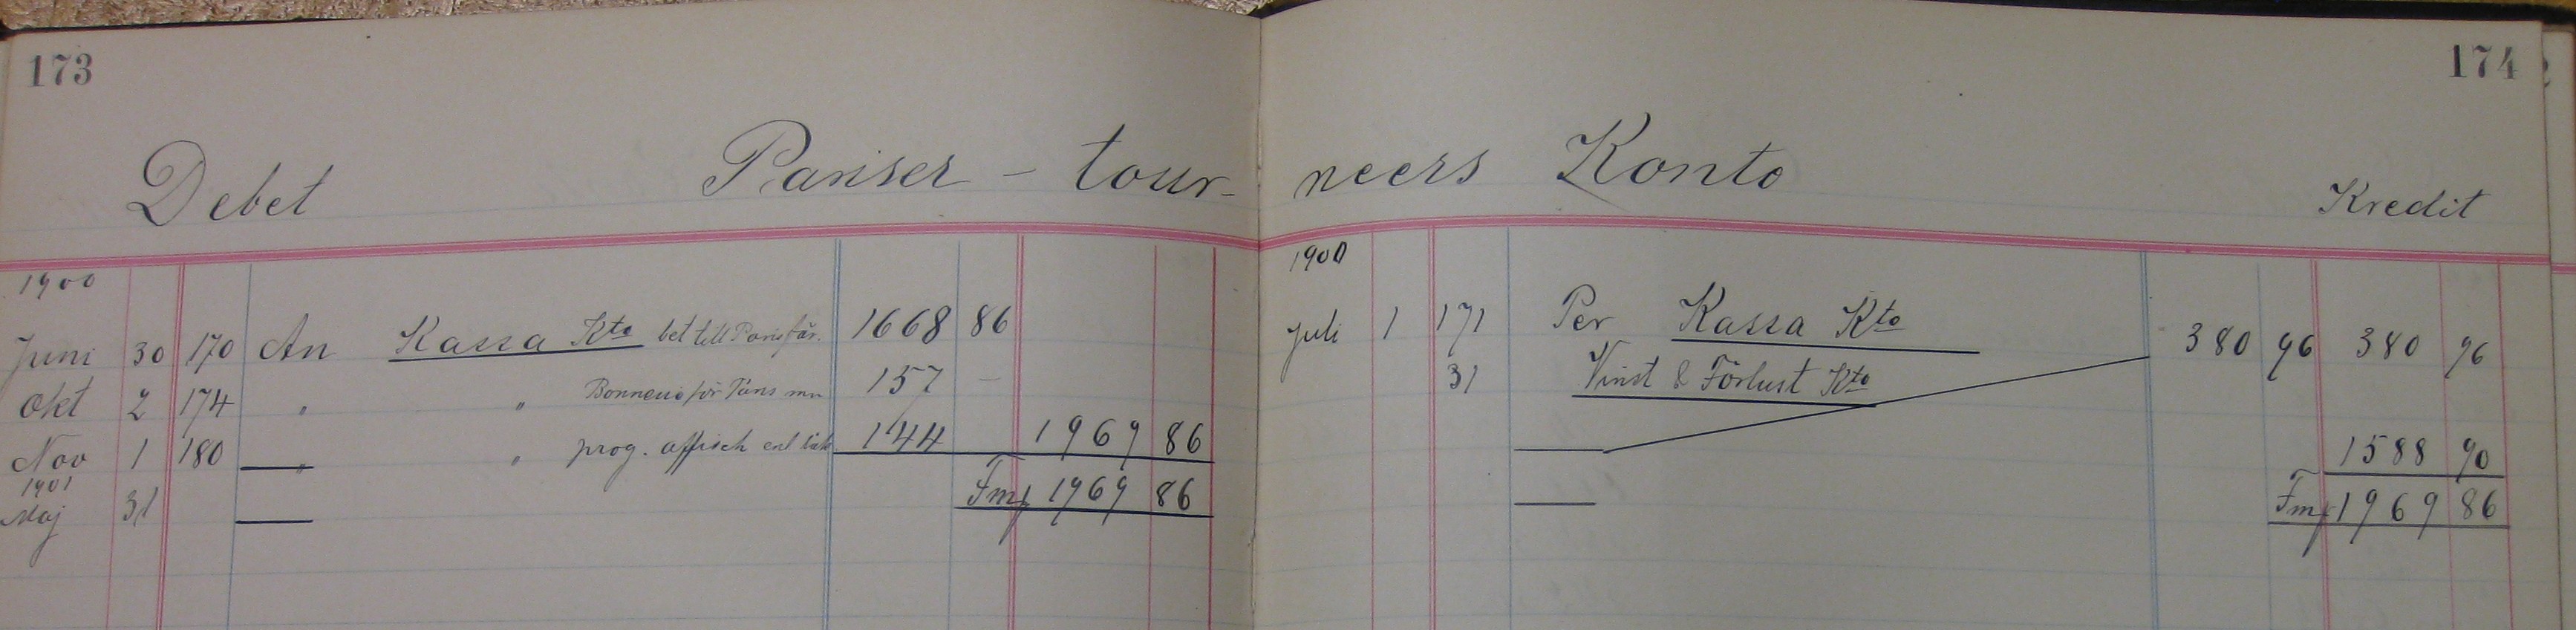 173
174
Debet Pariser - tour- neers Konto Kredit
1900
Juni 30 170 An Kassa Kto bet till Parisfär. 1668 86
Okt 2 174 " " för mm 157 —
Nov 1 180 " " prog. affisch enl 144 1969 86
1901
Maj 31 Fmf 1969 86
1900
Juli 1 171 Per Kassa Kto 380 96 380 96
31 Vinst & Förlust Kto
1588 90
Fmf 1969 86